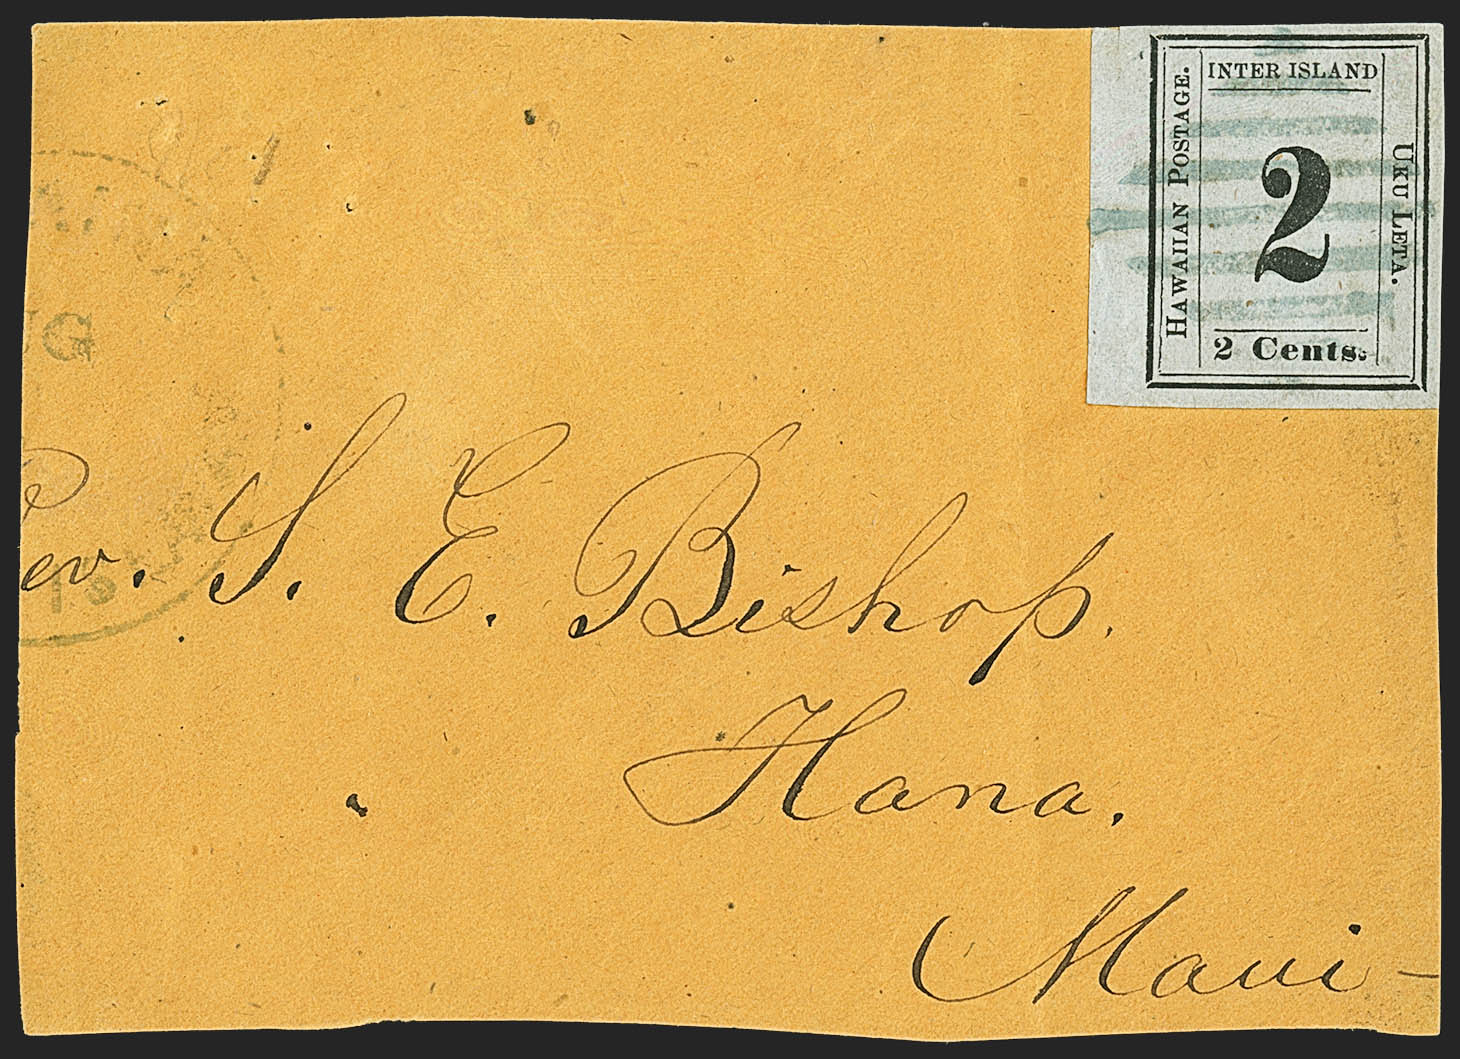 INTER ISLAND
HAWAIIAN POSTAGE.
2
UKU LETA.
2 Cents.
ev. S. E. Bishop.
Hana.
Maui-